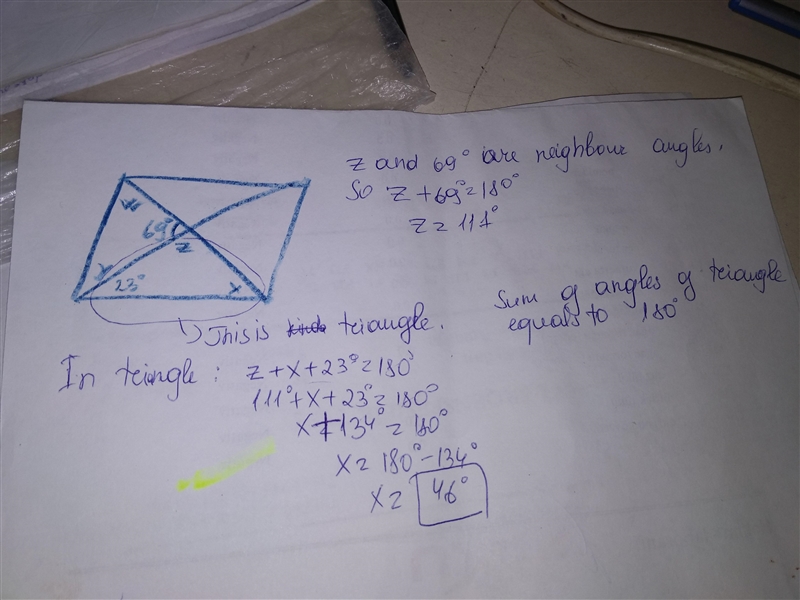 z and 69° are neighbour angles.
So z + 69° = 180°
z = 111°
69°
z
y
23°
x
This is triangle.
Sum of angles of triangle
equals to 180°
In triangle: z + x + 23° = 180°
111° + x + 23° = 180°
x + 134° = 180°
x = 180° - 134°
x = 46°